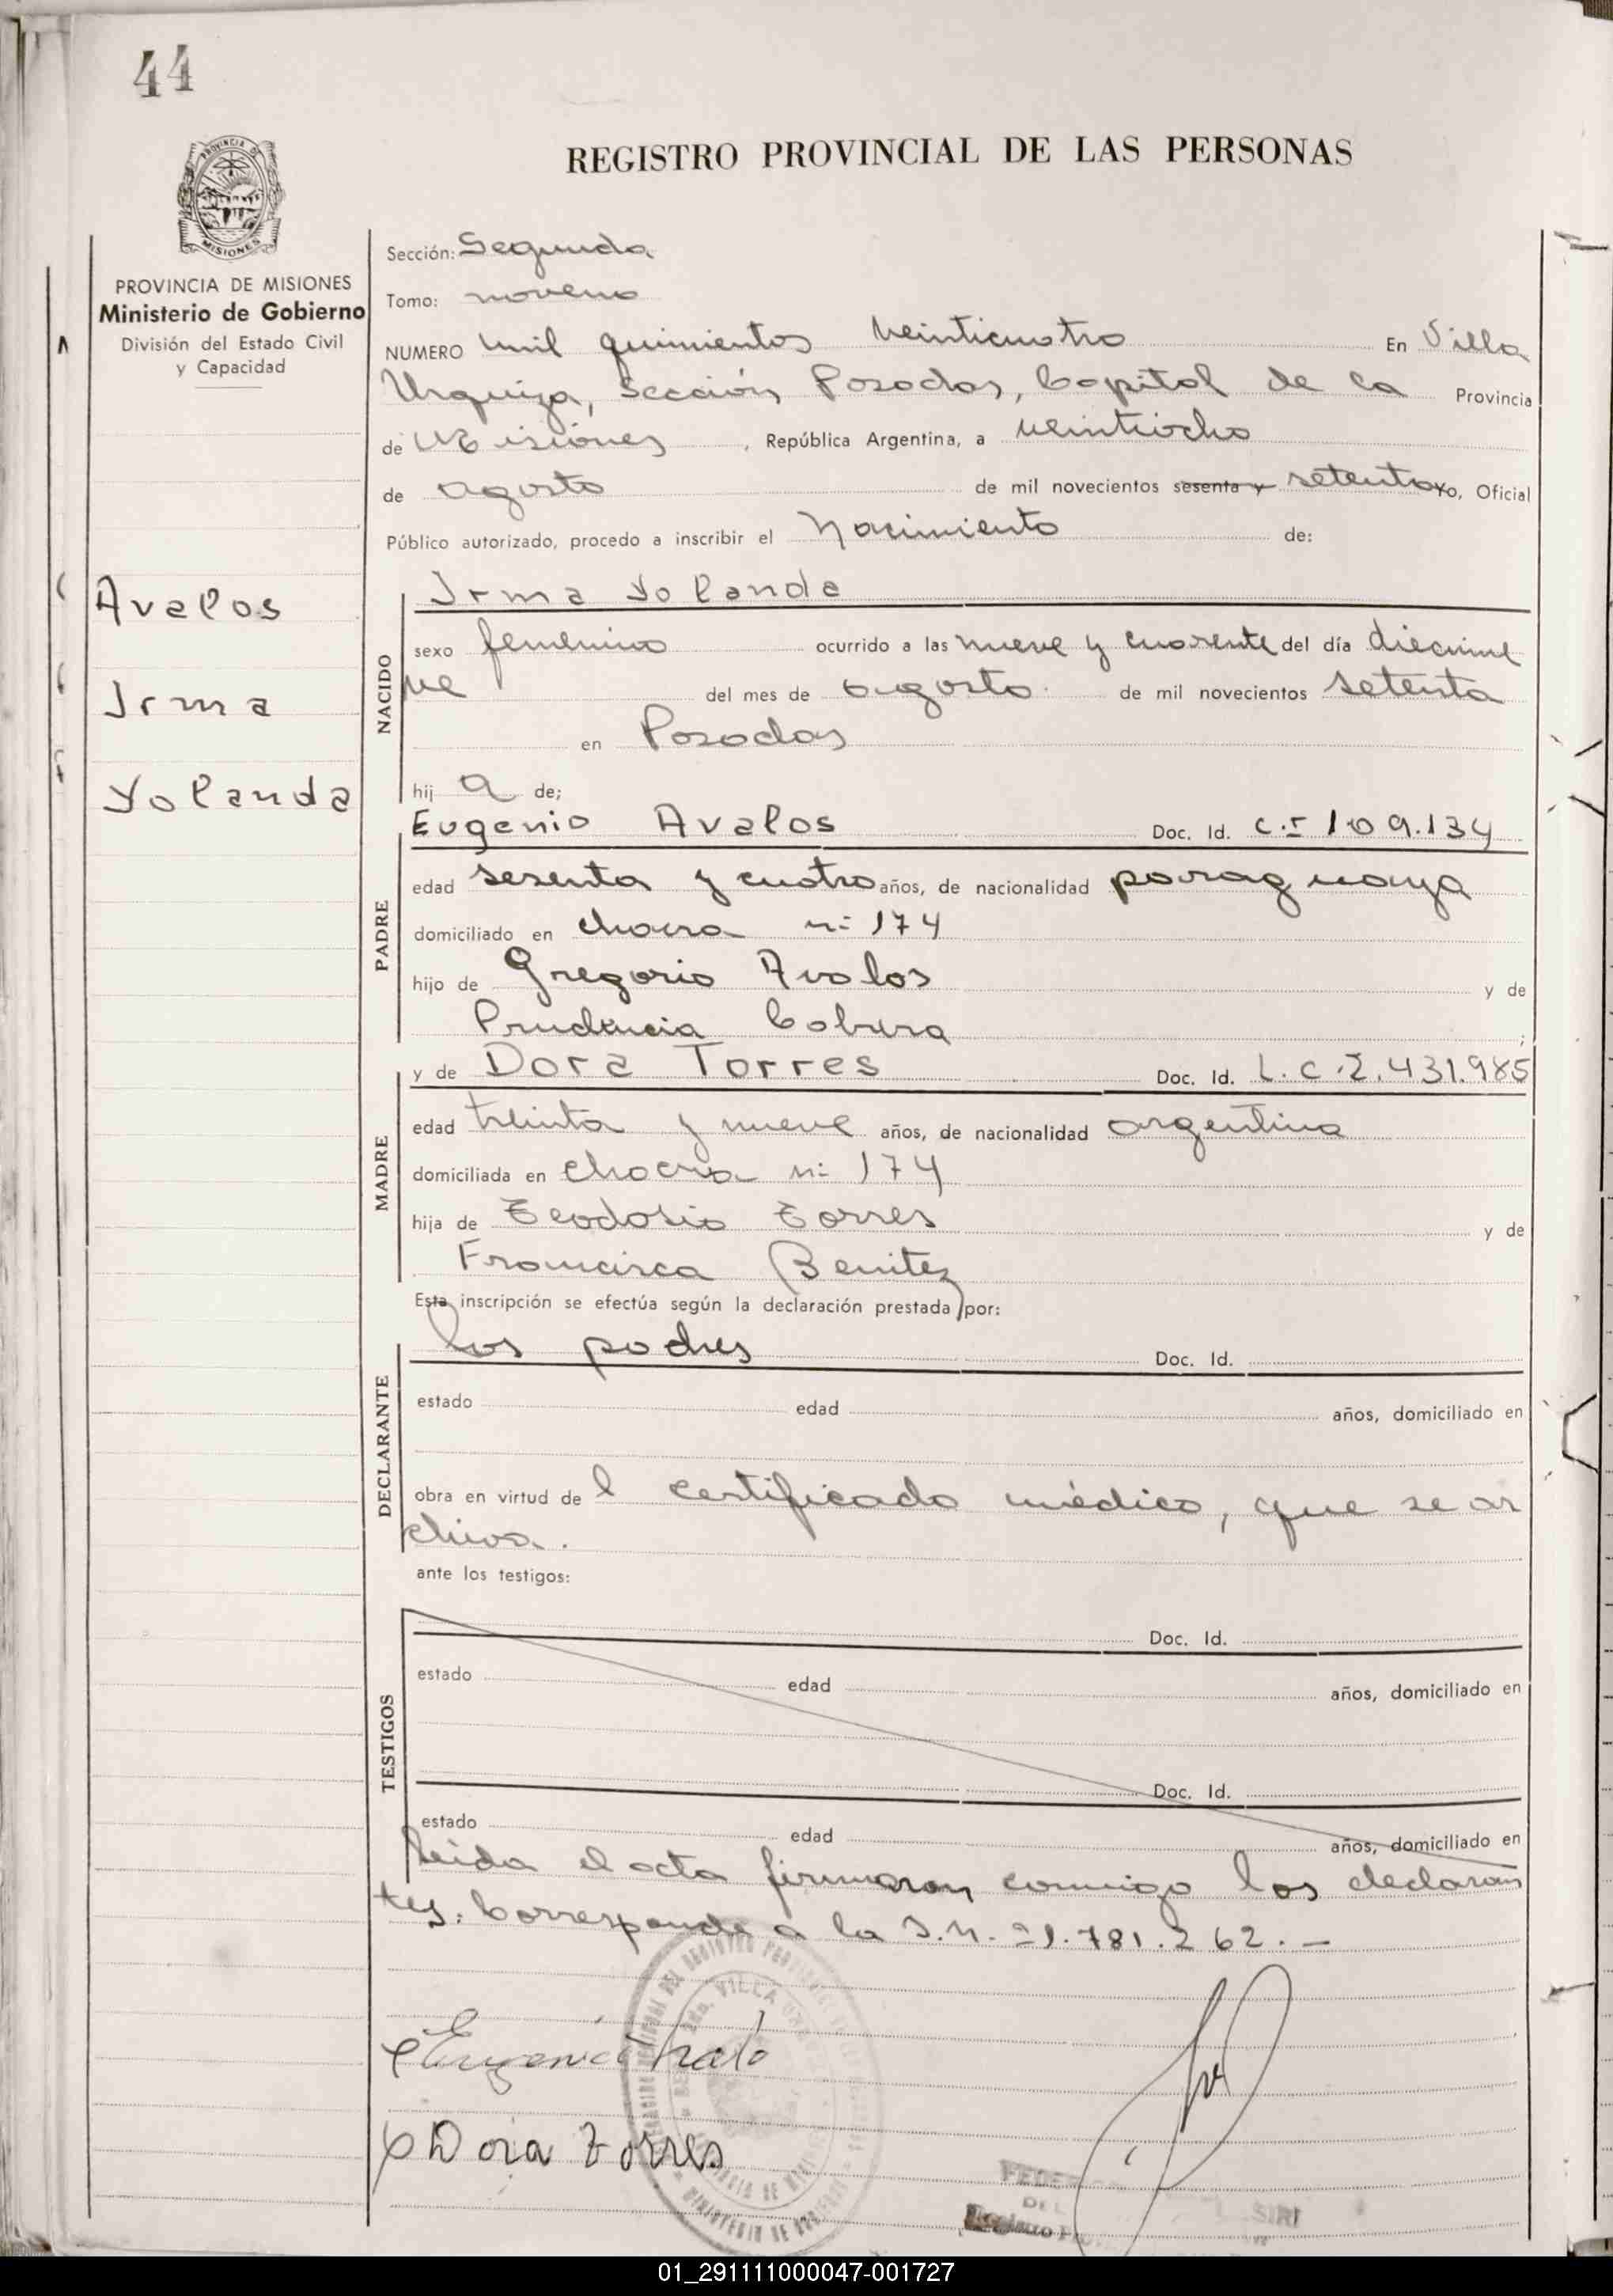 44
REGISTRO PROVINCIAL DE LAS PERSONAS
PROVINCIA DE MISIONES
Ministerio de Gobierno
División del Estado Civil
y Capacidad
Avalos
Irma
Yolanda
Sección: Segunda
Tomo: noveno
NUMERO mil quinientos veinticuatro En Villa
Urquiza, Sección Posadas, Capital de la Provincia
de Misiones, República Argentina, a veintiocho
de agosto de mil novecientos sesenta y setenta yo, Oficial
Público autorizado, procedo a inscribir el Nacimiento de:
NACIDO
Irma Yolanda
sexo femenino ocurrido a las nueve y cuarenta del día diecinue
ve del mes de agosto de mil novecientos setenta
en Posadas
hij a de;
PADRE
Eugenio Avalos Doc. Id. C.I 109.134
edad sesenta y cuatro años, de nacionalidad paraguaya
domiciliado en chacra n: 174
hijo de Gregorio Avalos y de
Prudencia Cabrera ;
MADRE
y de Dora Torres Doc. Id. L.C.2.431.985
edad treinta y nueve años, de nacionalidad argentina
domiciliada en chacra n: 174
hija de Teodosio Torres y de
Francisca Benitez
Esta inscripción se efectúa según la declaración prestada por:
DECLARANTE
los padres Doc. Id.
estado edad años, domiciliado en
obra en virtud de l certificado médico, que se ar
chiva.
ante los testigos:
TESTIGOS
Doc. Id.
estado edad años, domiciliado en
Doc. Id.
estado edad años, domiciliado en
Leida el acta firmaron conmigo los declaran
tes. Corresponde a la I.N. 21.781.262.—
Dora Torres
01_291111000047-001727